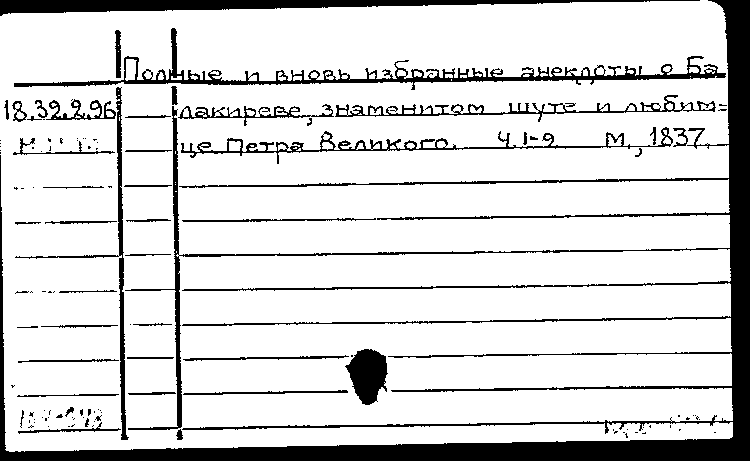 Полные и вновь избранные анекдоты о Ба
18.39.2.96 лакиреве, знаменитом шуте и любим=
це Петра Великого. Ч. 1-9 М., 1837.